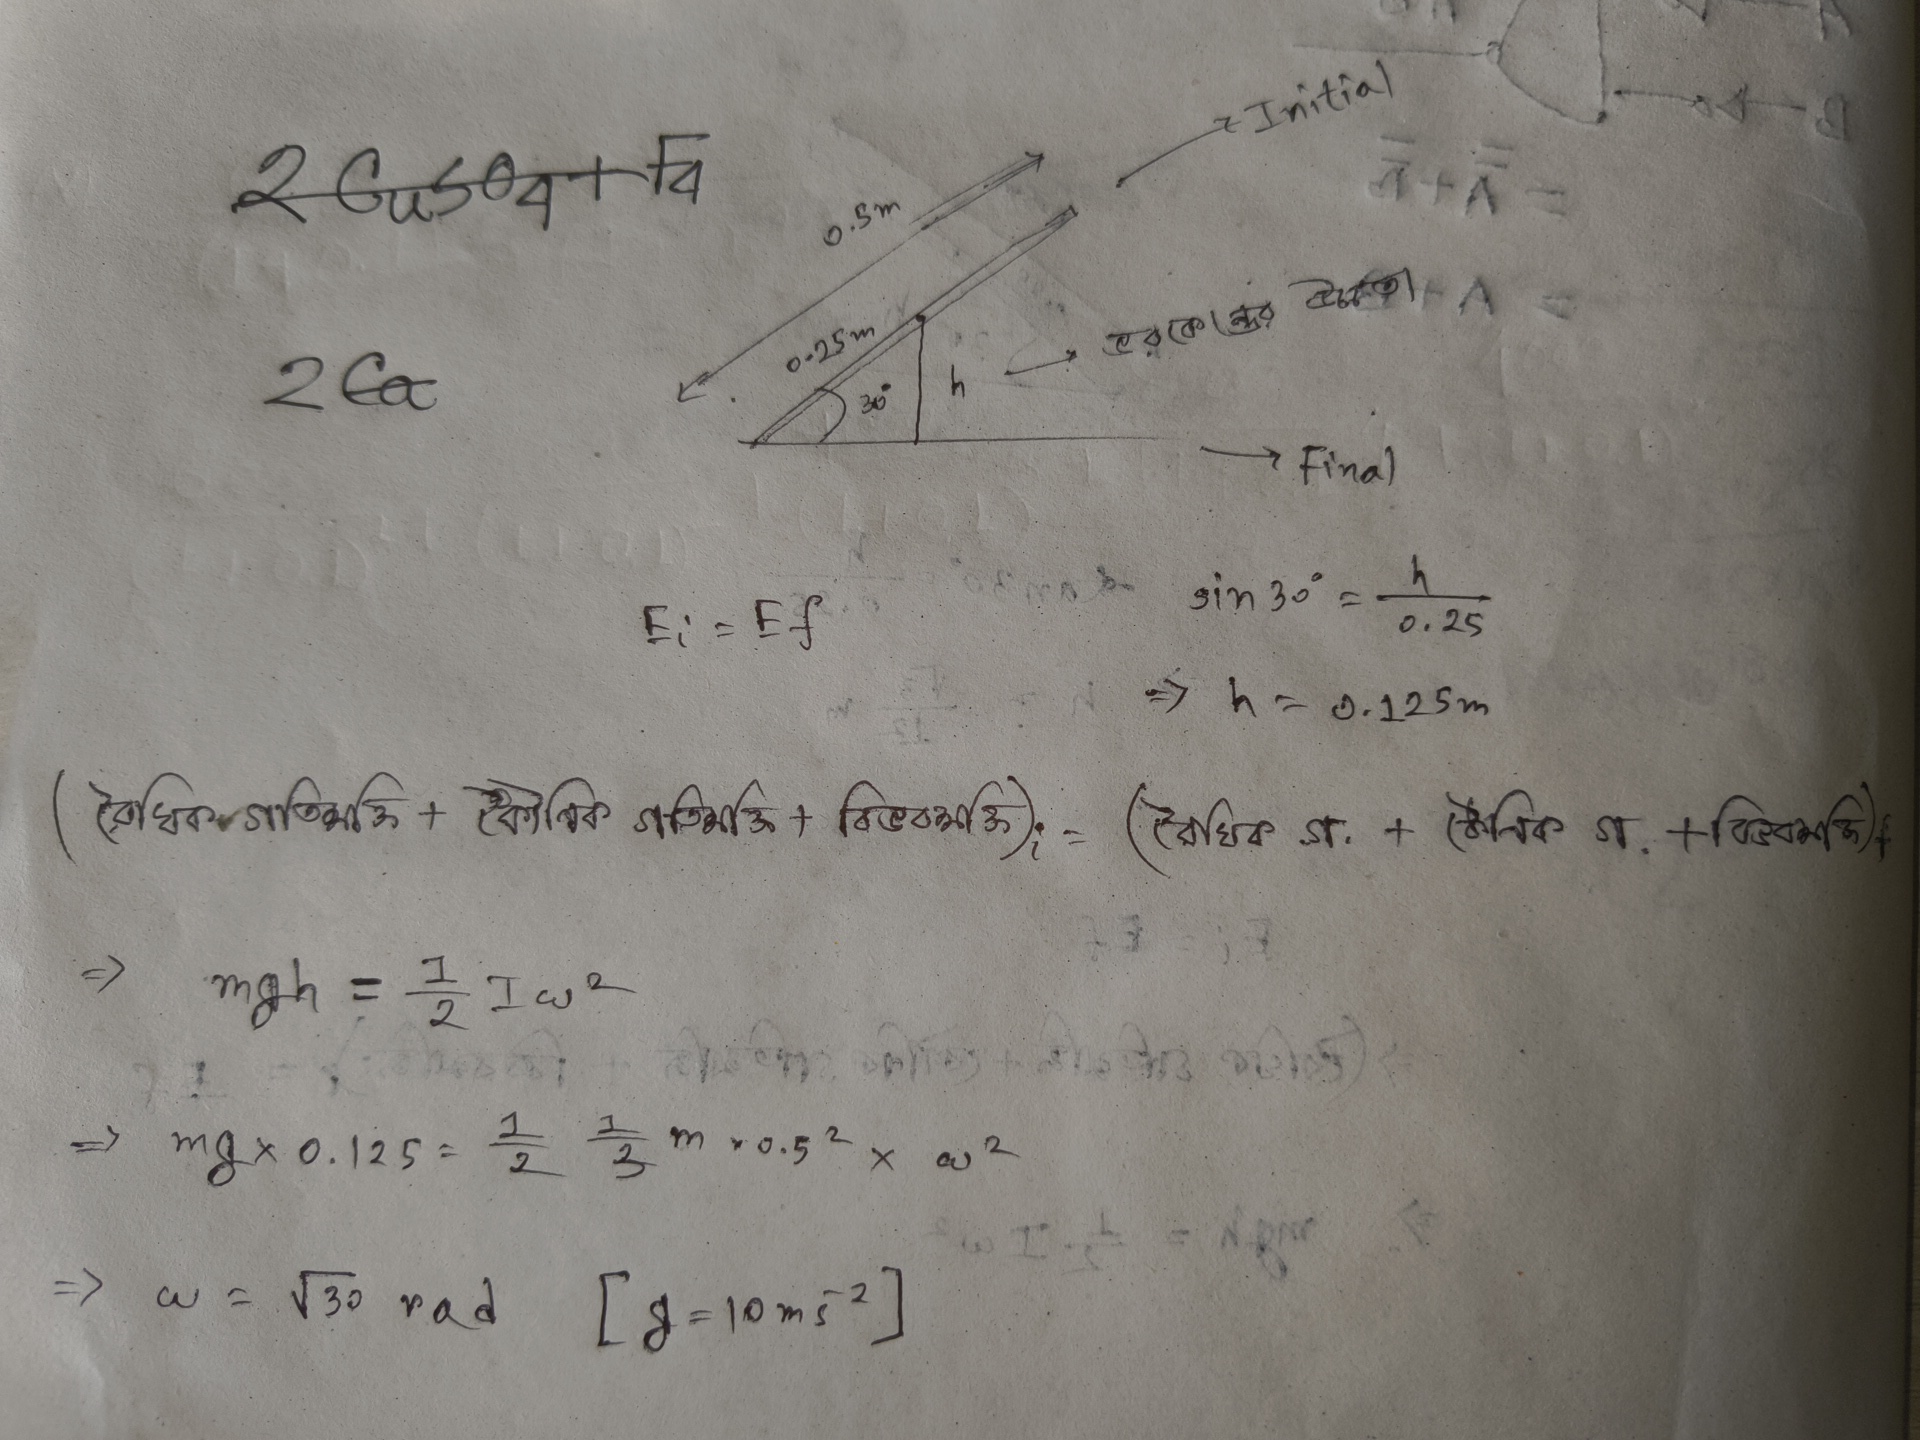 2CuSO4 + Fa
Initial
0.5m
0.25m
ভরকেন্দ্রের উচ্চতা
30°
h
Final
2 Ca
Ei = Ef
sin 30° = h / 0.25
⇒ h = 0.125m
(রৈখিক গতিশক্তি + কৌণিক গতিশক্তি + বিভবশক্তি)i = (রৈখিক গ. + কৌণিক গ. + বিভবশক্তি)f
⇒ mgh = 1/2 Iω²
⇒ mg × 0.125 = 1/2 1/3 m × 0.5² × ω²
⇒ ω = √30 rad [g = 10 ms⁻²]